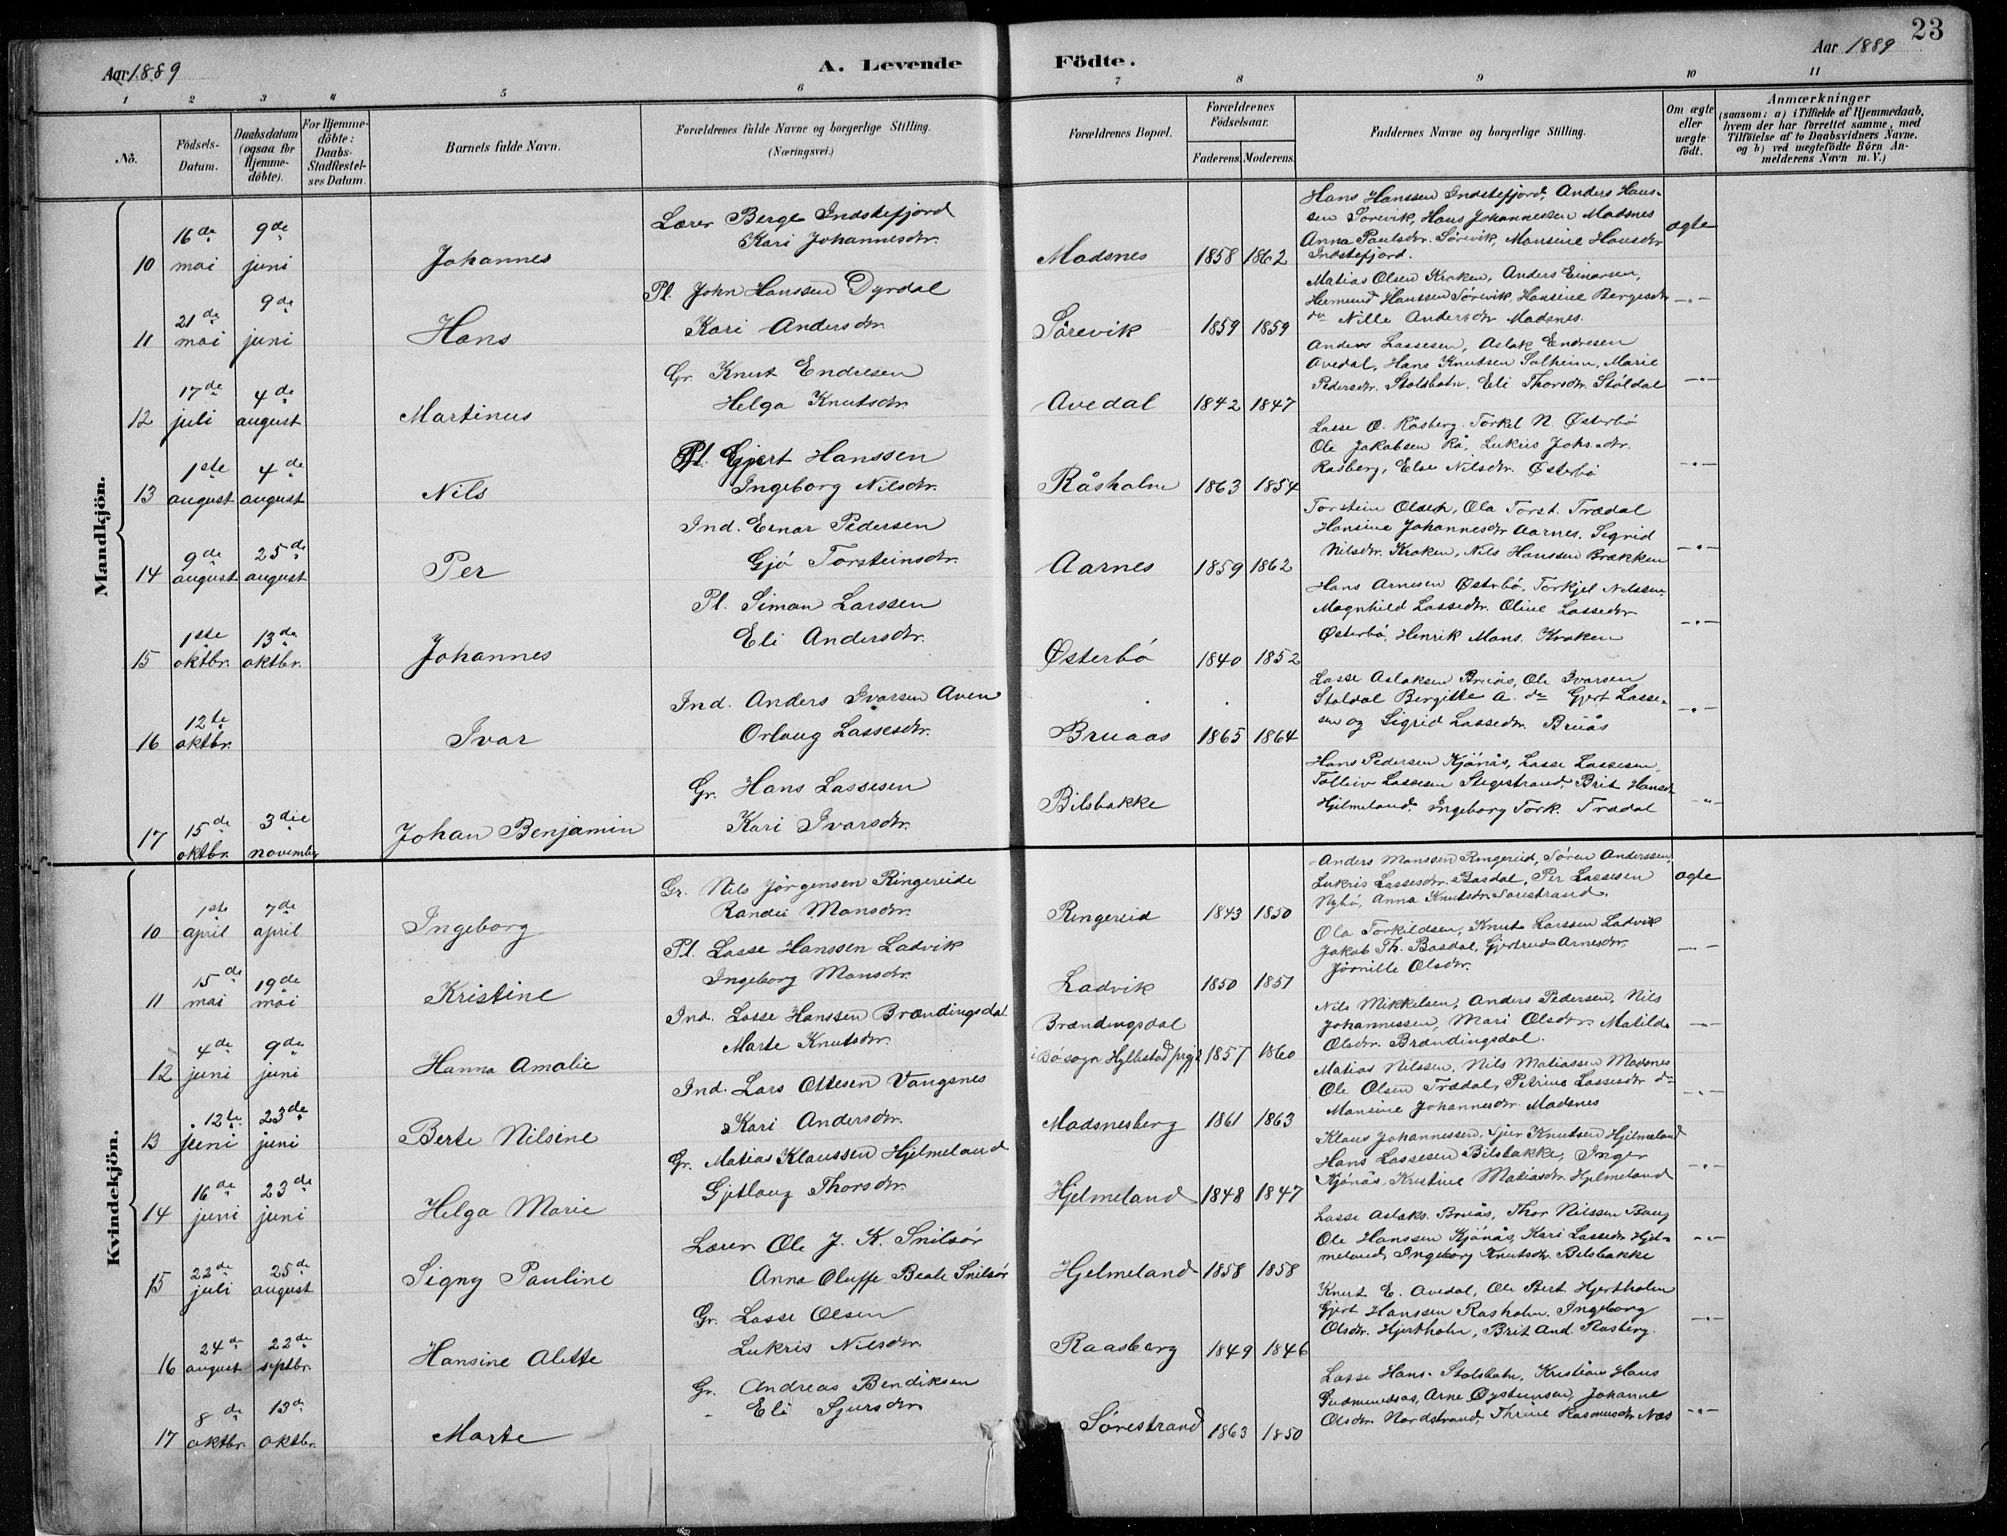 23
Aar 1889
A. Levende Födte.
Aar 1889
1 2 3 4 5 6 7 8 9 10 11
No.
Födsels-Datum.
Daabsdatum (ogsaa for Hjemme-döbte).
For Hjemme-döbte: Daabs-Stadfæstel-ses Datum.
Barnets fulde Navn.
Forældrenes fulde Navne og borgerlige Stilling. (Næringsvei.)
Forældrenes Bopæl.
Forældrenes Födselsaar.
Faderens. Moderens.
Faddernes Navne og borgerlige Stilling.
Om ægte eller uægte födt.
Anmærkninger
(saasom: a) i Tilfælde af Hjemmedaab,
hvem der har forrettet samme, med
Tilföielse af to Daabsvidners Navne.
og b) ved uægtefödte Börn An-
melderens Navn m. V.)
Mandkjön.
10 16de mai 9de juni Johannes
Lærer Berge Indstefjord
Kari Johannesdtr.
Madsnes 1858 1862
Hans Hanssen Indstefjord, Anders Hans-
sen Sørevik, Hans Johannessen Madsnes
Anna Paulsdtr. Sørevik, Mansine Hansdtr
Indstefjord.
ægte
11 21de mai 9de juni Hans
Pl. John Hanssen Dyrdal
Kari Andersdtr.
Sørevik 1859 1859
Matias Olsen Kroken, Anders Einarsen,
Hermund Hanssen Sørevik, Hansine Bergesdtr
do Nille Andersdtr Madsnes.
—"—
12 17de juli 4de august Martinus
Gr. Knut Endresen
Helga Knutsdtr.
Avedal 1842 1847
Anders Lassesen, Aslak Endresen
Avedal, Hans Knutsen Solheim, Marie
Pedersdtr. Stolsbotn, Eli Thorsdtr. Støldal
—"—
13 1ste august 4de august Nils
Pl. Gjert Hanssen
Ingeborg Nilsdtr.
Råsholm 1863 1854
Lasse O. Råsberg, Torkel N. Østerbø
Ole Jakobsen Rå, Lukris Johs.dtr.
Rasberg, Else Nilsdtr. Østerbø
—"—
14 9de august 25de august Per
Ind. Einar Pedersen
Gjø Torsteinsdtr.
Aarnes 1859 1862
Torstein Olsen, Ola Torst. Trædal
Hansine Johannesdtr Aarnes, Sigrid
Nilsdtr. Kroken, Nils Hanssen Brækken
—"—
15 1ste oktbr. 13de oktbr. Johannes
Pl. Simon Larssen
Eli Andersdtr.
Østerbø 1840 1852
Hans Arnesen Østerbø, Torkjel Nilssen,
Magnhild Lassedtr. Oline Lassedtr
Østerbø, Henrik Mons. Kroken
—"—
16 12te oktbr. Ivar
Ind. Anders Ivarsen Aven
Orlaug Lassesdtr.
Bruaas 1865 1864
Lasse Aslaksen Bruås, Ole Ivarsen
Støldal Bergitte A. do Gjert Lasse-
sen og Sigrid Lassedtr. Bruås
—"—
17 15de oktbr. 3die november Johan Benjamin
Gr. Hans Lassesen
Kari Ivarsdtr.
Bilsbakke
Hans Pedersen Kjønås, Lasse Lassesen,
Tolleiv Lassesen Stegestrand, Brit Hansdtr
Hjelmeland, Ingeborg Tork. Trædal
—"—
Kvindekjön.
10 1ste april 7de april Ingeborg
Gr. Nils Jørgensen Ringereide
Randei Monsdtr.
Ringereid 1843 1850
Anders Monssen Ringereid, Søren Anderssen,
Lukris Lassesdtr. Basdal, Per Lassesen
Nybø, Anna Knutsdtr. Sørestrand.
ægte
11 15de mai 19de mai Kristine
Pl. Lasse Hanssen Ladvik
Ingeborg Monsdtr.
Ladvik 1850 1857
Ola Torkildsen, Knut Larssen Ladvik
Jakob Th. Basdal, Gjertrud Arnesdtr.
Jørnille Olsdtr.
—"—
12 4de juni 9de juni Hanna Amalie
Ind. Lasse Hanssen Brændingsdal
Marte Knutsdtr.
Brændingsdal
i Bø sogn Hyllestad prgj. 1857 1860
Nils Mikkelsen, Anders Pedersen, Nils
Johannessen, Mari Olsdtr. Matilde
Olsdtr. Brændingsdal.
—"—
13 12te juni 23de juni Berte Nilsine
Ind. Lars Ottesen Vangsnes
Kari Andersdtr.
Madsnesberg 1861 1863
Matias Nilssen, Nils Matiassen Madsnes
Ole Olsen Trædal, Petrine Lassesdtr do
Mansine Johannesdtr. Madsnes
—"—
14 16de juni 23de juni Helga Marie
Gr. Matias Klaussen Hjelmeland
Gjetlaug Thorsdtr.
Hjelmeland 1848 1847
Klaus Johannessen, Sjur Knutsen Hjelmeland
Hans Lassesen Bilsbakke, Inger
Kjønås, Kristine Matiasdtr. Hjelmeland
—"—
15 22de juli 25de august Signy Pauline
Lærer Ole J. K. Snilsør
Anna Oluffe Beate Snilsør
Hjelmeland 1858 1858
Lasse Aslaks. Bruås, Thor Nilssen Baug
Ole Hanssen Kjønås, Kari Lassedtr. Hjel-
meland, Ingeborg Knutsdtr. Bilsbakke
—"—
16 24de august 22de septbr. Hansine Alette
Gr. Lasse Olsen
Lukris Nilsdtr.
Raasberg 1849 1846
Knut E. Avedal, Ole Bert. Hjertholm
Gjert Hanssen Rasholm, Ingeborg
Olsdtr. Hjertholm, Brit And. Rasberg.
—"—
17 8de oktbr. 13de oktbr. Marte
Gr. Andreas Bendiksen
Eli Sjursdtr
Sørestrand 1863 1850
Lasse Hans. Stolsbotn, Kristian Hans
Gudmundsås, Arne Øysteinsen, Johanne
Olsdtr. Nordstrand, Thrine Rasmusdtr. Næs
—"—